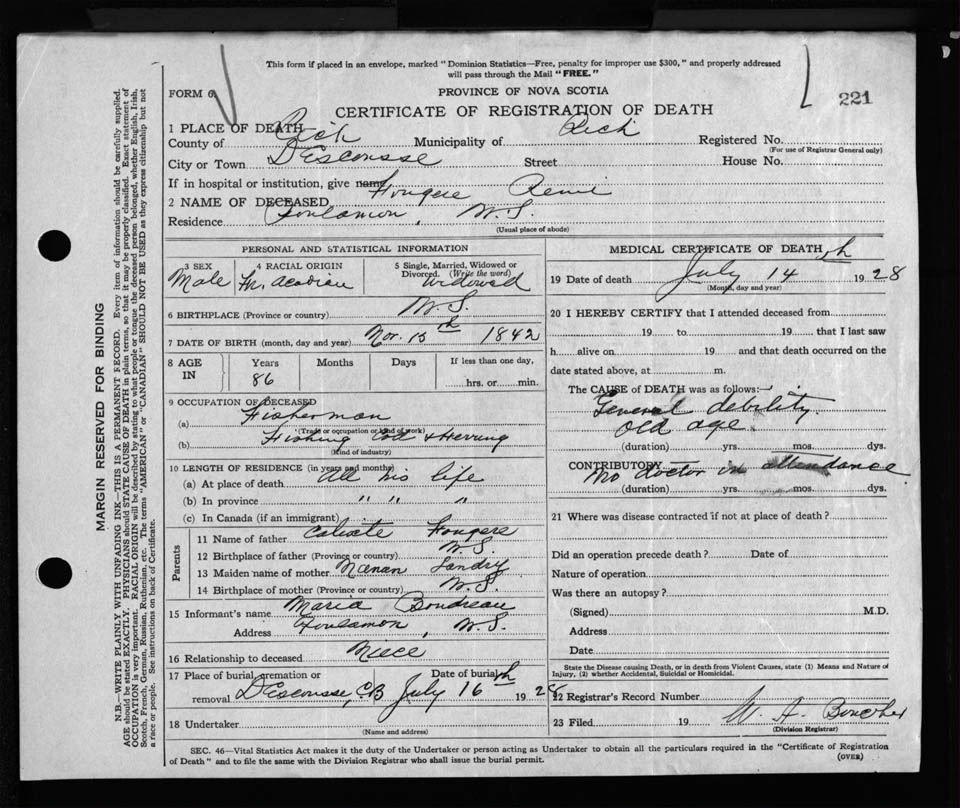 This form if placed in an envelope, marked "Dominion Statistics—Free, penalty for improper use $300," and properly addressed
will pass through the Mail "FREE."
FORM 6
PROVINCE OF NOVA SCOTIA
221
CERTIFICATE OF REGISTRATION OF DEATH
1 PLACE OF DEATH
County of Rich Municipality of Rich Registered No.
(For use of Registrar General only)
City or Town Descousse Street House No.
If in hospital or institution, give name
2 NAME OF DECEASED Fougere Remi
Residence Poulamon, N.S.
(Usual place of abode)
PERSONAL AND STATISTICAL INFORMATION
3 SEX 4 RACIAL ORIGIN 5 Single, Married, Widowed or
Divorced. (Write the word)
Male Fr. Acadian Widowed
6 BIRTHPLACE (Province or country) N.S.
7 DATE OF BIRTH (month, day and year) Nov. 15th 1842
8 AGE IN Years Months Days If less than one day,
86 hrs. or min.
9 OCCUPATION OF DECEASED
(a) Fisherman
(Trade or occupation or kind of work)
(b) Fishing Cod & Herring
(Kind of industry)
10 LENGTH OF RESIDENCE (in years and months)
(a) At place of death All his life
(b) In province " " "
(c) In Canada (if an immigrant)
Parents
11 Name of father Calixte Fougere
12 Birthplace of father (Province or country) N.S.
13 Maiden name of mother Landry
14 Birthplace of mother (Province or country) N.S.
15 Informant's name Maria Boudreau
Address Poulamon, N.S.
16 Relationship to deceased Niece
17 Place of burial, cremation or Date of burial
removal Descousse, C.B July 16th 1928
18 Undertaker
(Name and address)
MEDICAL CERTIFICATE OF DEATH
19 Date of death July 14th 1928
(Month, day and year)
20 I HEREBY CERTIFY that I attended deceased from
19 to 19 that I last saw
h alive on 19 and that death occurred on the
date stated above, at m.
The CAUSE of DEATH was as follows:
General debility
Old age
(duration) yrs. mos. dys.
CONTRIBUTORY No doctor in attendance
(duration) yrs. mos. dys.
21 Where was disease contracted if not at place of death?
Did an operation precede death? Date of
Nature of operation
Was there an autopsy?
(Signed) M.D.
Address
Date
State the Disease causing Death, or in death from Violent Causes, state (1) Means and Nature of
Injury, (2) whether Accidental, Suicidal or Homicidal.
22 Registrar's Record Number
23 Filed 19 W. A.
(Division Registrar)
SEC. 46—Vital Statistics Act makes it the duty of the Undertaker or person acting as Undertaker to obtain all the particulars required in the "Certificate of Registration
of Death" and to file the same with the Division Registrar who shall issue the burial permit.
(OVER)
MARGIN RESERVED FOR BINDING
N.B.—WRITE PLAINLY, WITH UNFADING INK—THIS IS A PERMANENT RECORD. Every item of information should be carefully supplied.
AGE should be stated EXACTLY. PHYSICIANS should STATE CAUSE OF DEATH in plain terms, so that it may be properly classified. Exact statement of
OCCUPATION is very important. RACIAL ORIGIN will be described by stating to what people or tongue the deceased person belonged, whether English, Irish,
Scotch, French, German, Russian, Ruthenian, etc. The terms "AMERICAN" or "CANADIAN" SHOULD NOT BE USED as they express citizenship but not
a face or people. See instructions on back of Certificate.